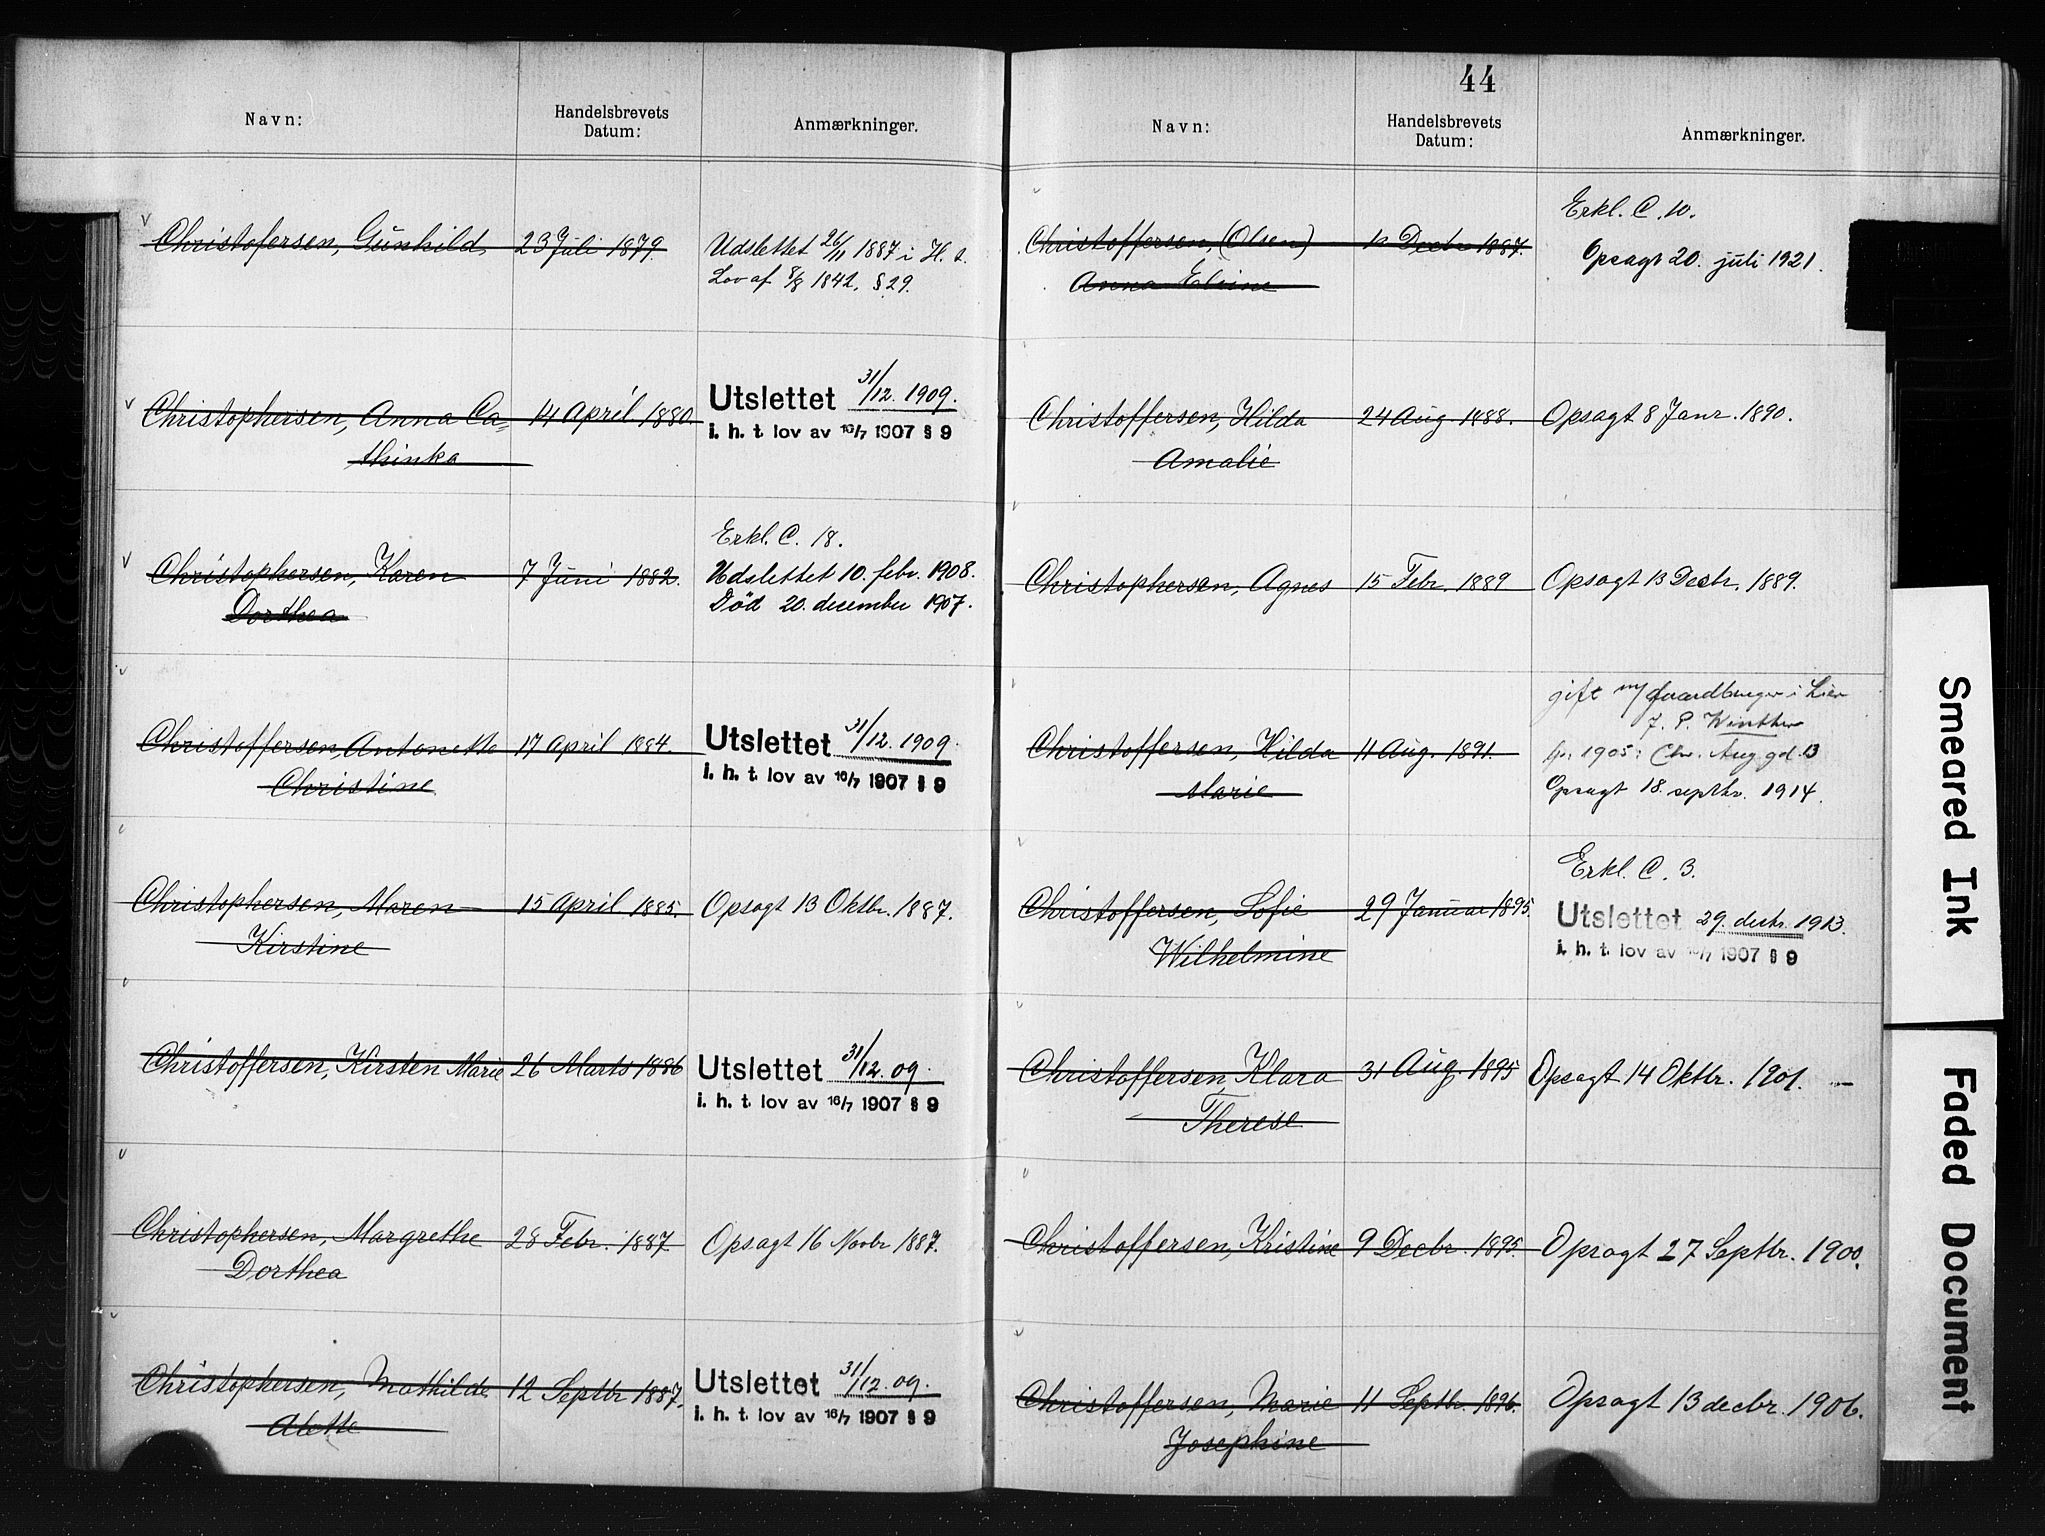 Navn:
Handelsbrevets
Datum:
Anmærkninger.
Christofersen, Gunhild
23 Juli 1879.
Udslettet 26/11 1887 i H. t.
Lov af 8/8 1842. § 29.
Christophersen, Anna Ca=
thinka
14 April 1880.
Utslettet 31/12. 1909.
i. h. t. lov av 16/7 1907 § 9
Christophersen, Karen
Dorthea
7 Juni 1882.
Erkl. C. 18.
Udslettet 10. febr. 1908.
Død 20. december 1907.
Christoffersen, Antonette
Christine
17 April 1884.
Utslettet 31/12. 1909.
i. h. t. lov av 16/7 1907 § 9
Christophersen, Maren
Kirstine
15 April 1885.
Opsagt 13 Oktbr. 1887.
Christoffersen, Kirsten Marie
26 Marts 1886
Utslettet 31/12. 09.
i. h. t. lov av 16/7 1907 § 9
Christophersen, Margrethe
Dorthea
28 Febr. 1887.
Opsagt 16 Novbr 1887.
Christophersen, Mathilde
Alette
12 Septbr 1887.
Utslettet 31/12. 09.
i. h. t. lov av 16/7 1907 § 9
44
Navn:
Handelsbrevets
Datum:
Anmærkninger.
Christoffersen, (Olsen)
Anna Elvine
Decbr 1887.
Erkl. C. 10.
Opsagt 20. juli 1921.
Christoffersen, Hilda
Amalie
24 Aug 1888.
Opsagt 8 Janr. 1890.
Christophersen, Agnes
15 Febr. 1889
Opsagt 13 Decbr. 1889.
Christoffersen, Hilda
Marie
11 Aug. 1891.
gift m/ i Lier
F. P. Winther
1905: Chr. Aug. gd. 13
Opsagt 18. septbr. 1914.
Christoffersen, Sofie
Wilhelmine
29 Januar 1895.
Erkl. C. 3.
Utslettet 29. decbr. 1913.
i. h. t. lov av 16/7 1907 § 9
Christoffersen, Klara
Therese
31 Aug. 1895
Opsagt 14 Oktbr. 1901. —
Christoffersen, Kristine
9 Decbr. 1895.
Opsagt 27 Septbr. 1900.
Christoffersen, Marie
Josephine
11 Septbr. 1896.
Opsagt 13 decbr. 1906.
Smeared Ink
Faded Document